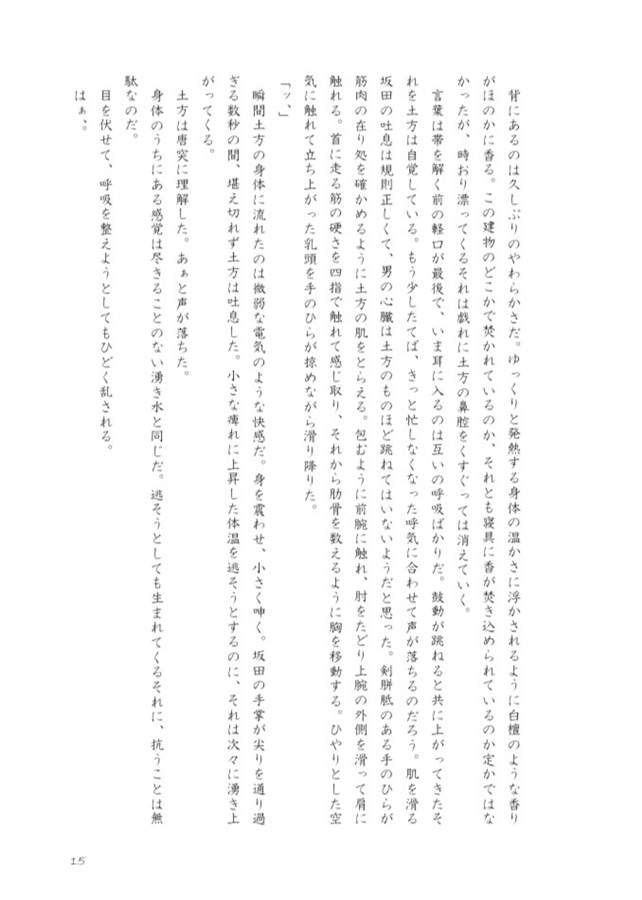 背にあるのは久しぶりのやわらかさだ。ゆっくりと発熱する身体の温かさに浮かされるように白檀のような香り
がほのかに香る。この建物のどこかで焚かれているのか、それとも寝具に香が焚き込められているのか定かではな
かったが、時おり漂ってくるそれは戯れに土方の鼻腔をくすぐっては消えていく。
言葉は帯を解く前の軽口が最後で、いま耳に入るのは互いの呼吸ばかりだ。鼓動が跳ねると共に上がってきたそ
れを土方は自覚している。もう少したてば、きっと忙しなくなった呼気に合わせて声が落ちるのだろう。肌を滑る
坂田の吐息は規則正しくて、男の心臓は土方のものほど跳ねてはいないようだと思った。剣胼胝のある手のひらが
筋肉の在り処を確かめるように土方の肌をとらえる。包むように前腕に触れ、肘をたどり上腕の外側を滑って肩に
触れる。首に走る筋の硬さを四指で触れて感じ取り、それから肋骨を数えるように胸を移動する。ひやりとした空
気に触れて立ち上がった乳頭を手のひらが掠めながら滑り降りた。
「ッ、」
瞬間土方の身体に流れたのは微弱な電気のような快感だ。身を震わせ、小さく呻く。坂田の手掌が尖りを通り過
ぎる数秒の間、堪え切れず土方は吐息した。小さな痺れに上昇した体温を逃そうとするのに、それは次々に湧き上
がってくる。
土方は唐突に理解した。あぁと声が落ちた。
身体のうちにある感覚は尽きることのない湧き水と同じだ。逃そうとしても生まれてくるそれに、抗うことは無
駄なのだ。
目を伏せて、呼吸を整えようとしてもひどく乱される。
はぁ、。
15